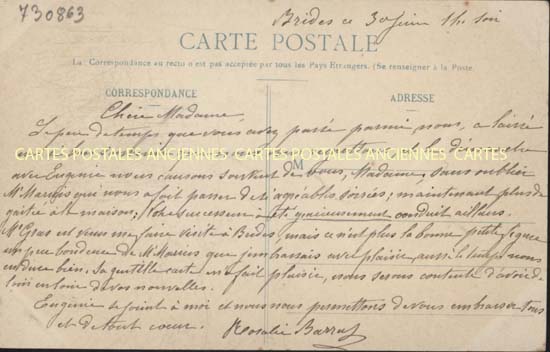 730863
Brides ce 30 juin 1h. soir
CARTE POSTALE
La Correspondance au recto n'est pas acceptée par tous les Pays Etrangers. (Se renseigner à la Poste.
CORRESPONDANCE
ADRESSE
Chère Madame,
Le peu de temps que vous avez passé parmi nous, a laissé
CARTES POSTALES ANCIENNES CARTES POSTALES ANCIENNES CARTES POSTALES ANCIENNES
avec Eugénie nous causons souvent de vous, Madame, sans oublier
OM
Mr Marius qui nous a fait passer de si agréables soirées; maintenant plus de
gaîté à la maison; son successeur a été gracieusement conduit ailleurs.
Mr Gras est venu me faire visite à Brides, mais ce n'est plus la bonne petite figure
un peu boudeuse de Mr Marius que j'embrassais avec plaisir, aussi le temps nous
dure bien. Sa gentille carte m'a fait plaisir, nous serons contente d'avoir de
loin en loin de vos nouvelles.
Eugénie se joint à moi et nous nous permettons de vous embrasser tous
et de tout coeur.
Rosalie